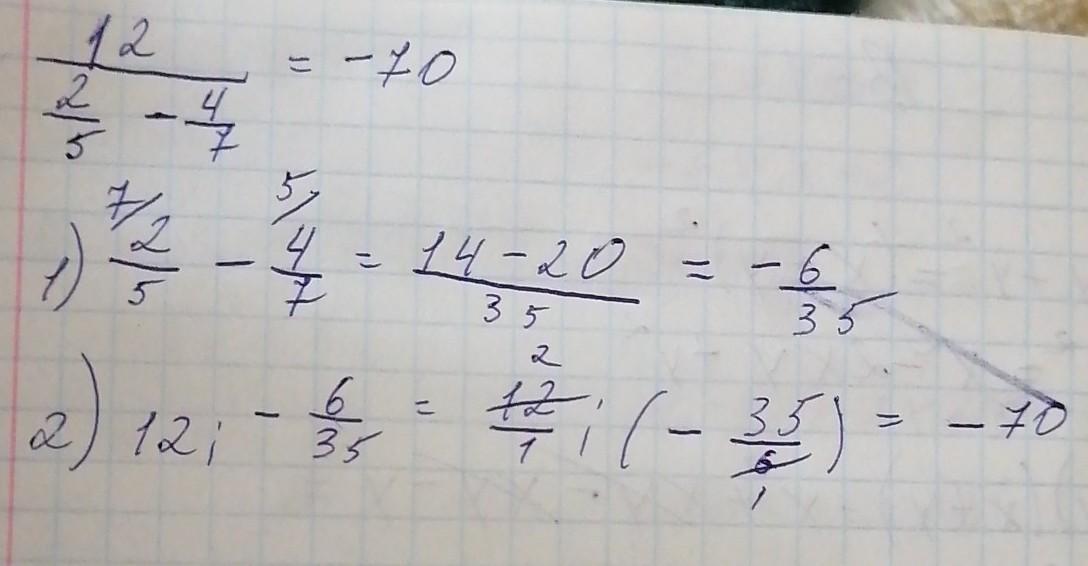 12 / (2/5 - 4/7) = -70
1) 7/ 2/5 - 5/ 4/7 = 14-20/35 = -6/35
2) 12 ; - 6/35 = 2 12/1 ; (- 35/6 1) = -70